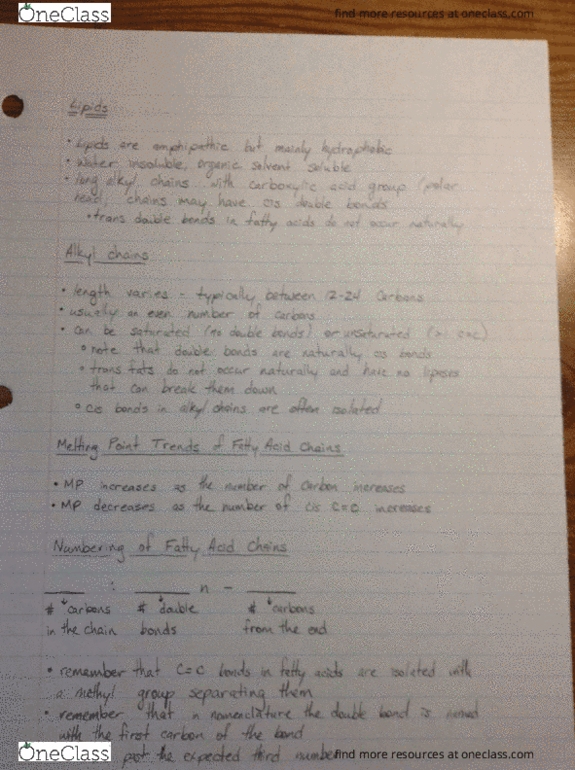 OneClass
find more resources at oneclass.com
Lipids
• Lipids are amphipathic but mainly hydrophobic
• water insoluble, organic solvent soluble
• long alkyl chains with carboxylic acid group (polar
head), chains may have cis double bonds
• trans double bonds in fatty acids do not occur naturally
Alkyl chains
• length varies - typically between 12-24 carbons
• usually an even number of carbons
• can be saturated (no double bonds) or unsaturated (>1 c=c)
• note that double bonds are naturally cis bonds
• trans fats do not occur naturally and have no lipases
that can break them down
• cis bonds in alkyl chains are often isolated
Melting Point Trends of Fatty Acid Chains
• MP increases as the number of carbon increases
• MP decreases as the number of cis C=C increases
Numbering of Fatty Acid Chains
___ : ___ n - ___
# carbons # double # carbons
in the chain bonds from the end
• remember that C=C bonds in fatty acids are isolated with
a methyl group separating them
• remember that in nomenclature the double bond is named
with the first carbon of the bond
past the expected third number
OneClass
find more resources at oneclass.com